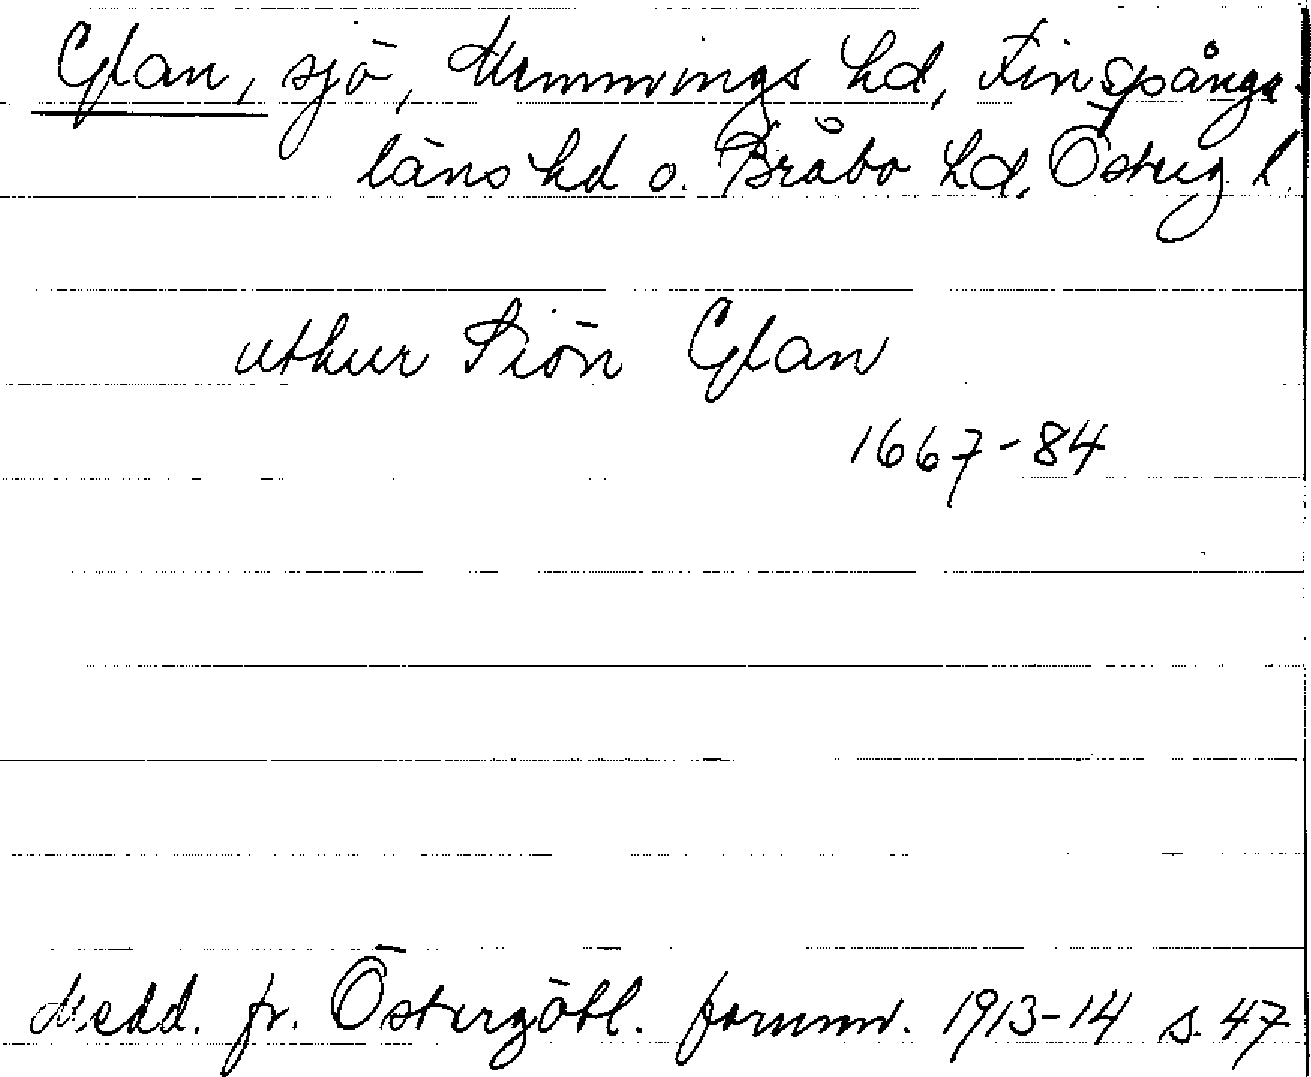 Glan, sjö, Memmings hd, Finspånga-
läns hd o. Bråbo hd, Österg l.
uthur Siön Glan
1667-84
Medd. fr. Östergötl. fornm. 1913-14 s. 47